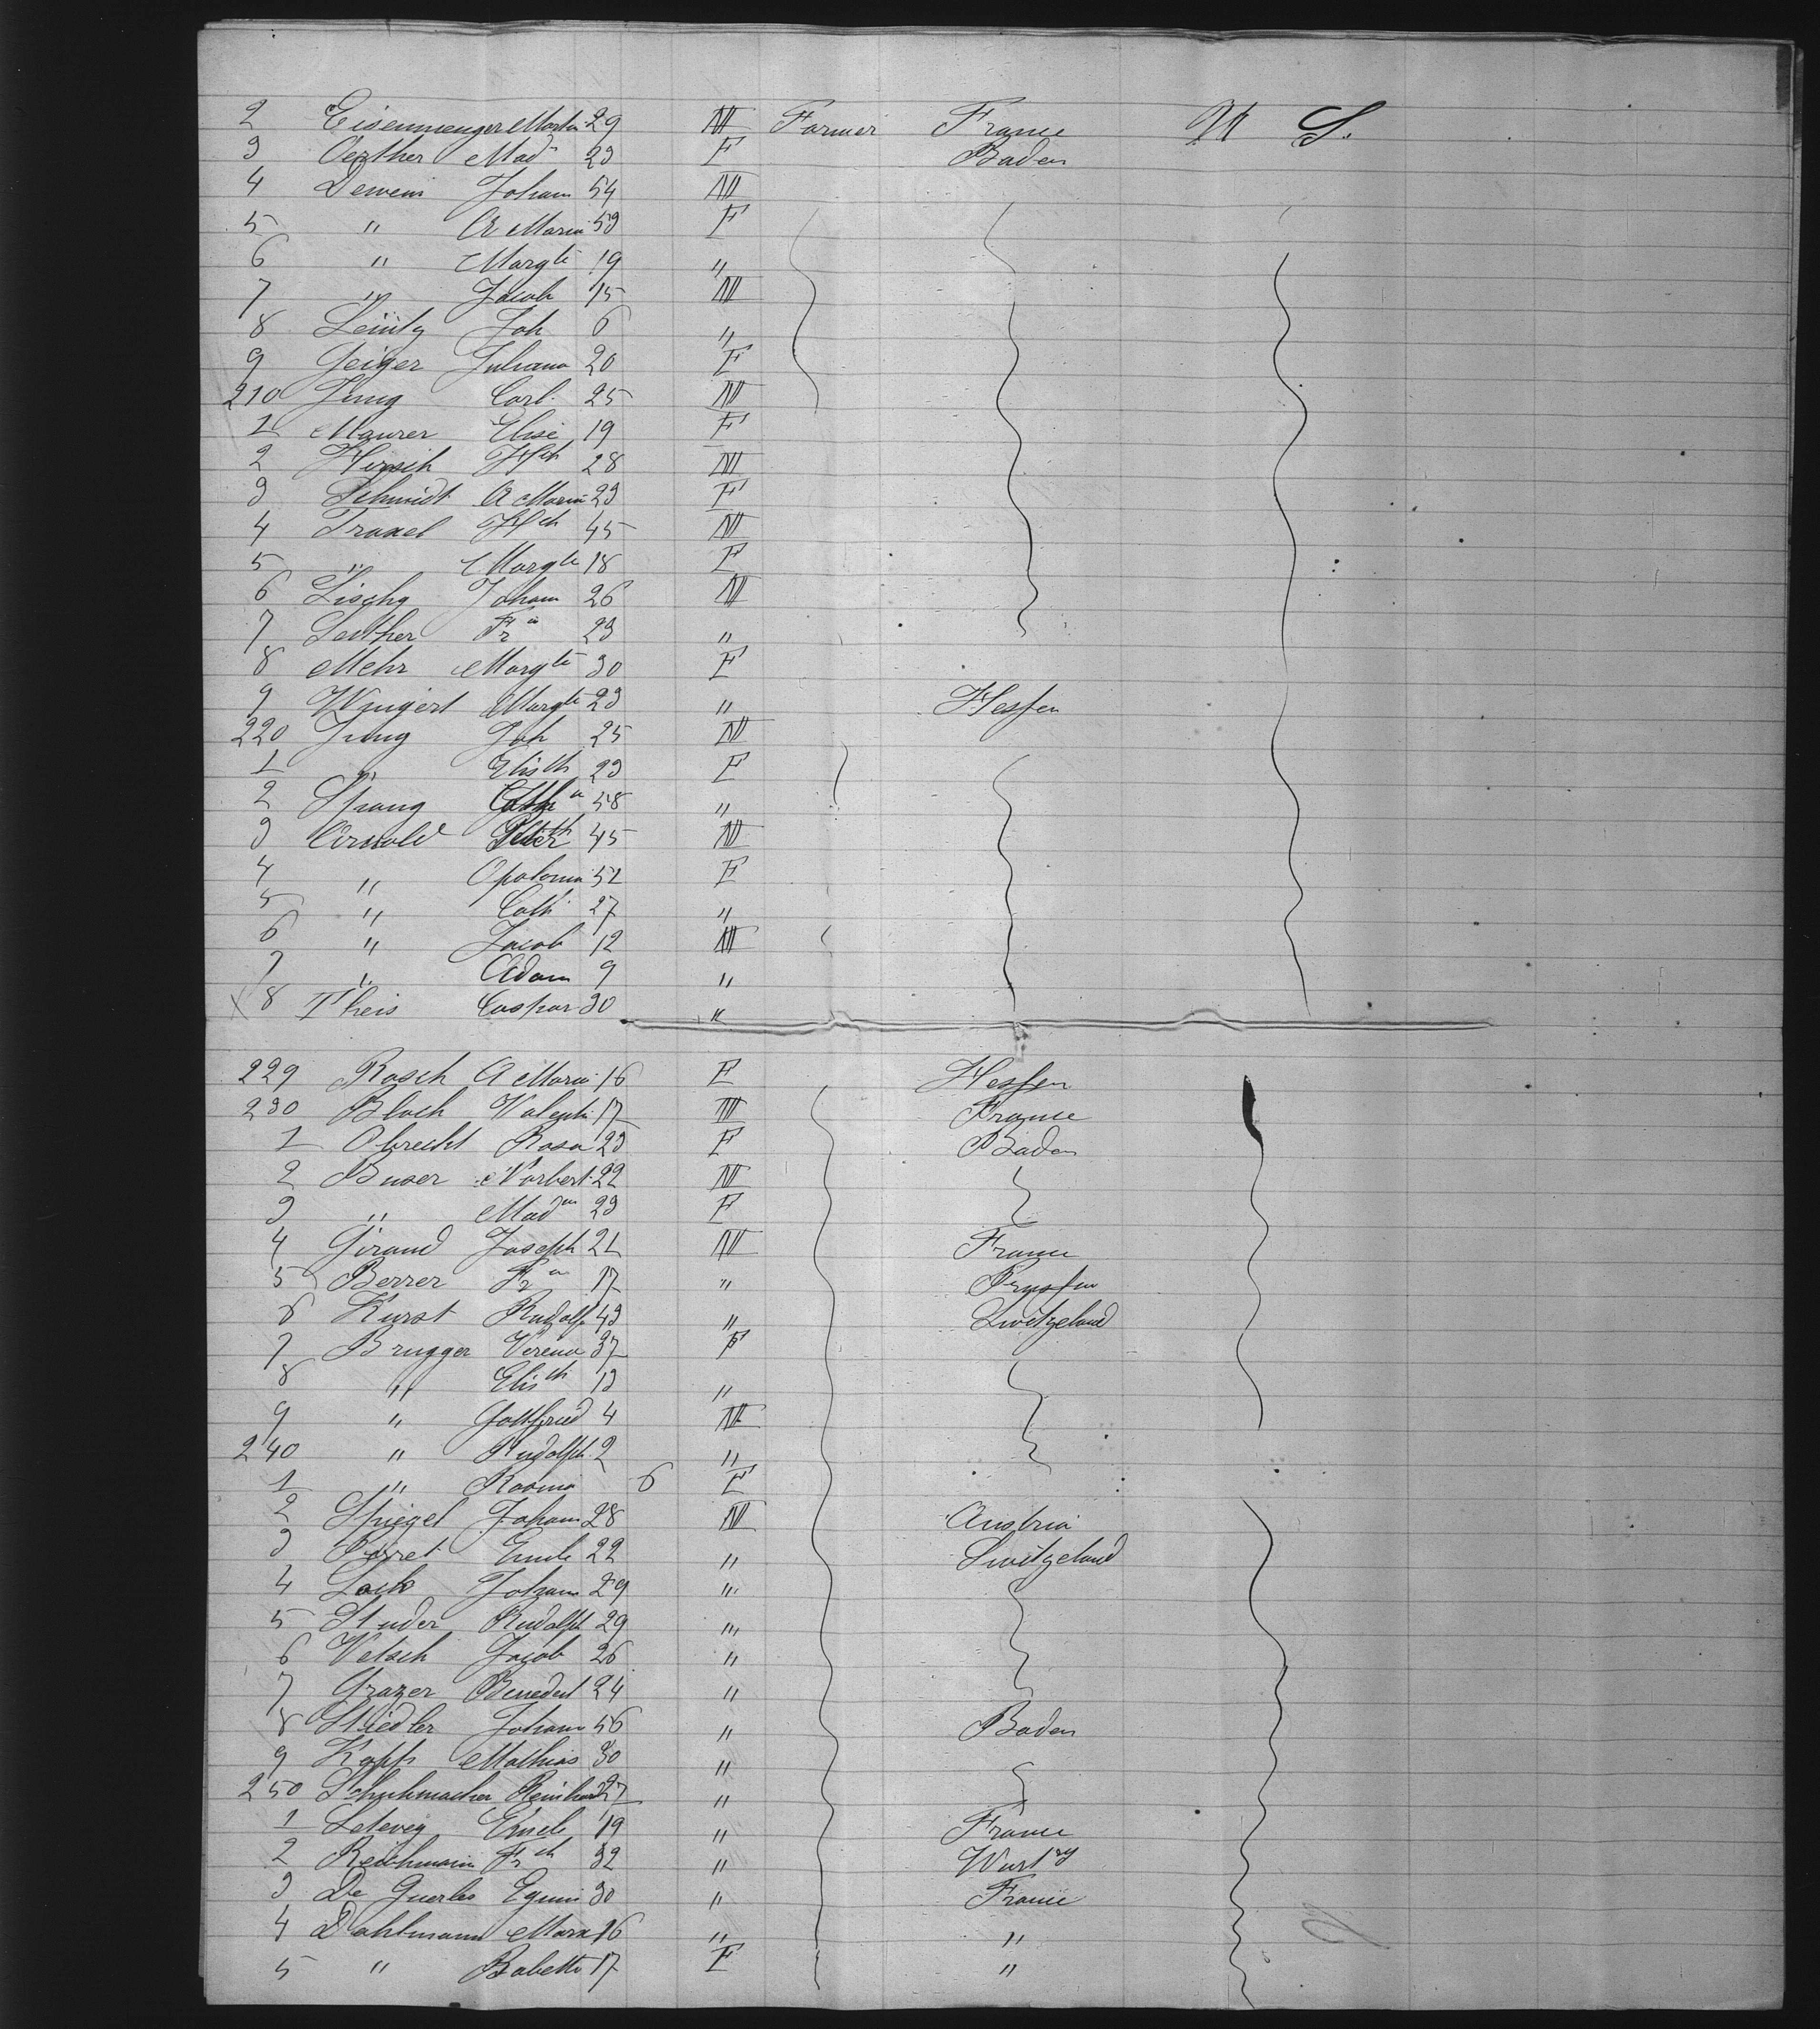 2 Eisenmenger Martin 29 M Farmer France U S.
3 Oerther Mad 23 F Baden
4 Johann 54 M
5 " A Maria 53 F
6 " Margte 19 "
7 " Jacob 15 M
8 Joh 6 "
9 Geiger Juliana 20 F
210 Jung Carl 25 M
1 Maurer Elise 19 F
2 Hirsch Hch 28 M
3 Schmidt A Maria 23 F
4 Traxel Hch 45 M
5 " Margte 18 F
6 Lischy Johann 26 M
7 Fr 23 "
8 Mehr Margte 30 F
9 Wingert Margte 23 " Hessen
220 Jung Joh 25 M
1 " Elisth 23 F
2 Spang Cath 58 "
3 Arnold 45 M
4 " Apolonia 52 F
5 " Cath 27 "
6 " Jacob 12 M
7 " Adam 9 "
8 Theis Caspar 30 "
229 Rasch A Maria 16 F Hessen
230 Bloch Valentin 17 M France
1 Obrecht Rosa 23 F Baden
2 Buser Norbert 22 M
3 " Mad 23 F
4 Giraud Joseph 21 M France
5 Berrer Fr 17 " Prussen
6 Hurst Rudolf 43 " Switzeland
7 Brugger Verena 37 F
8 " Elisth 13 "
9 " Gottfried 4 M
240 " Rudolph 2 "
1 " Rosina 6 F
2 Spiegel Johann 28 M Austria
3 Perret Emile 22 " Switzeland
4 Johann 29 "
5 Studer Rudolph 29 "
6 Vetsch Jacob 26 "
7 Grazer Benedect 24 "
8 Stiedler Johann 56 " Baden
9 Kopp Mathias 30 "
250 Schuhmacher Reinhard 27 "
1 Emile 19 " France
2 Reichmann Frch 32 " Wurtzg
3 De Querles 30 " France
4 Dahlmann Marx 16 " "
5 " Babette 17 F "